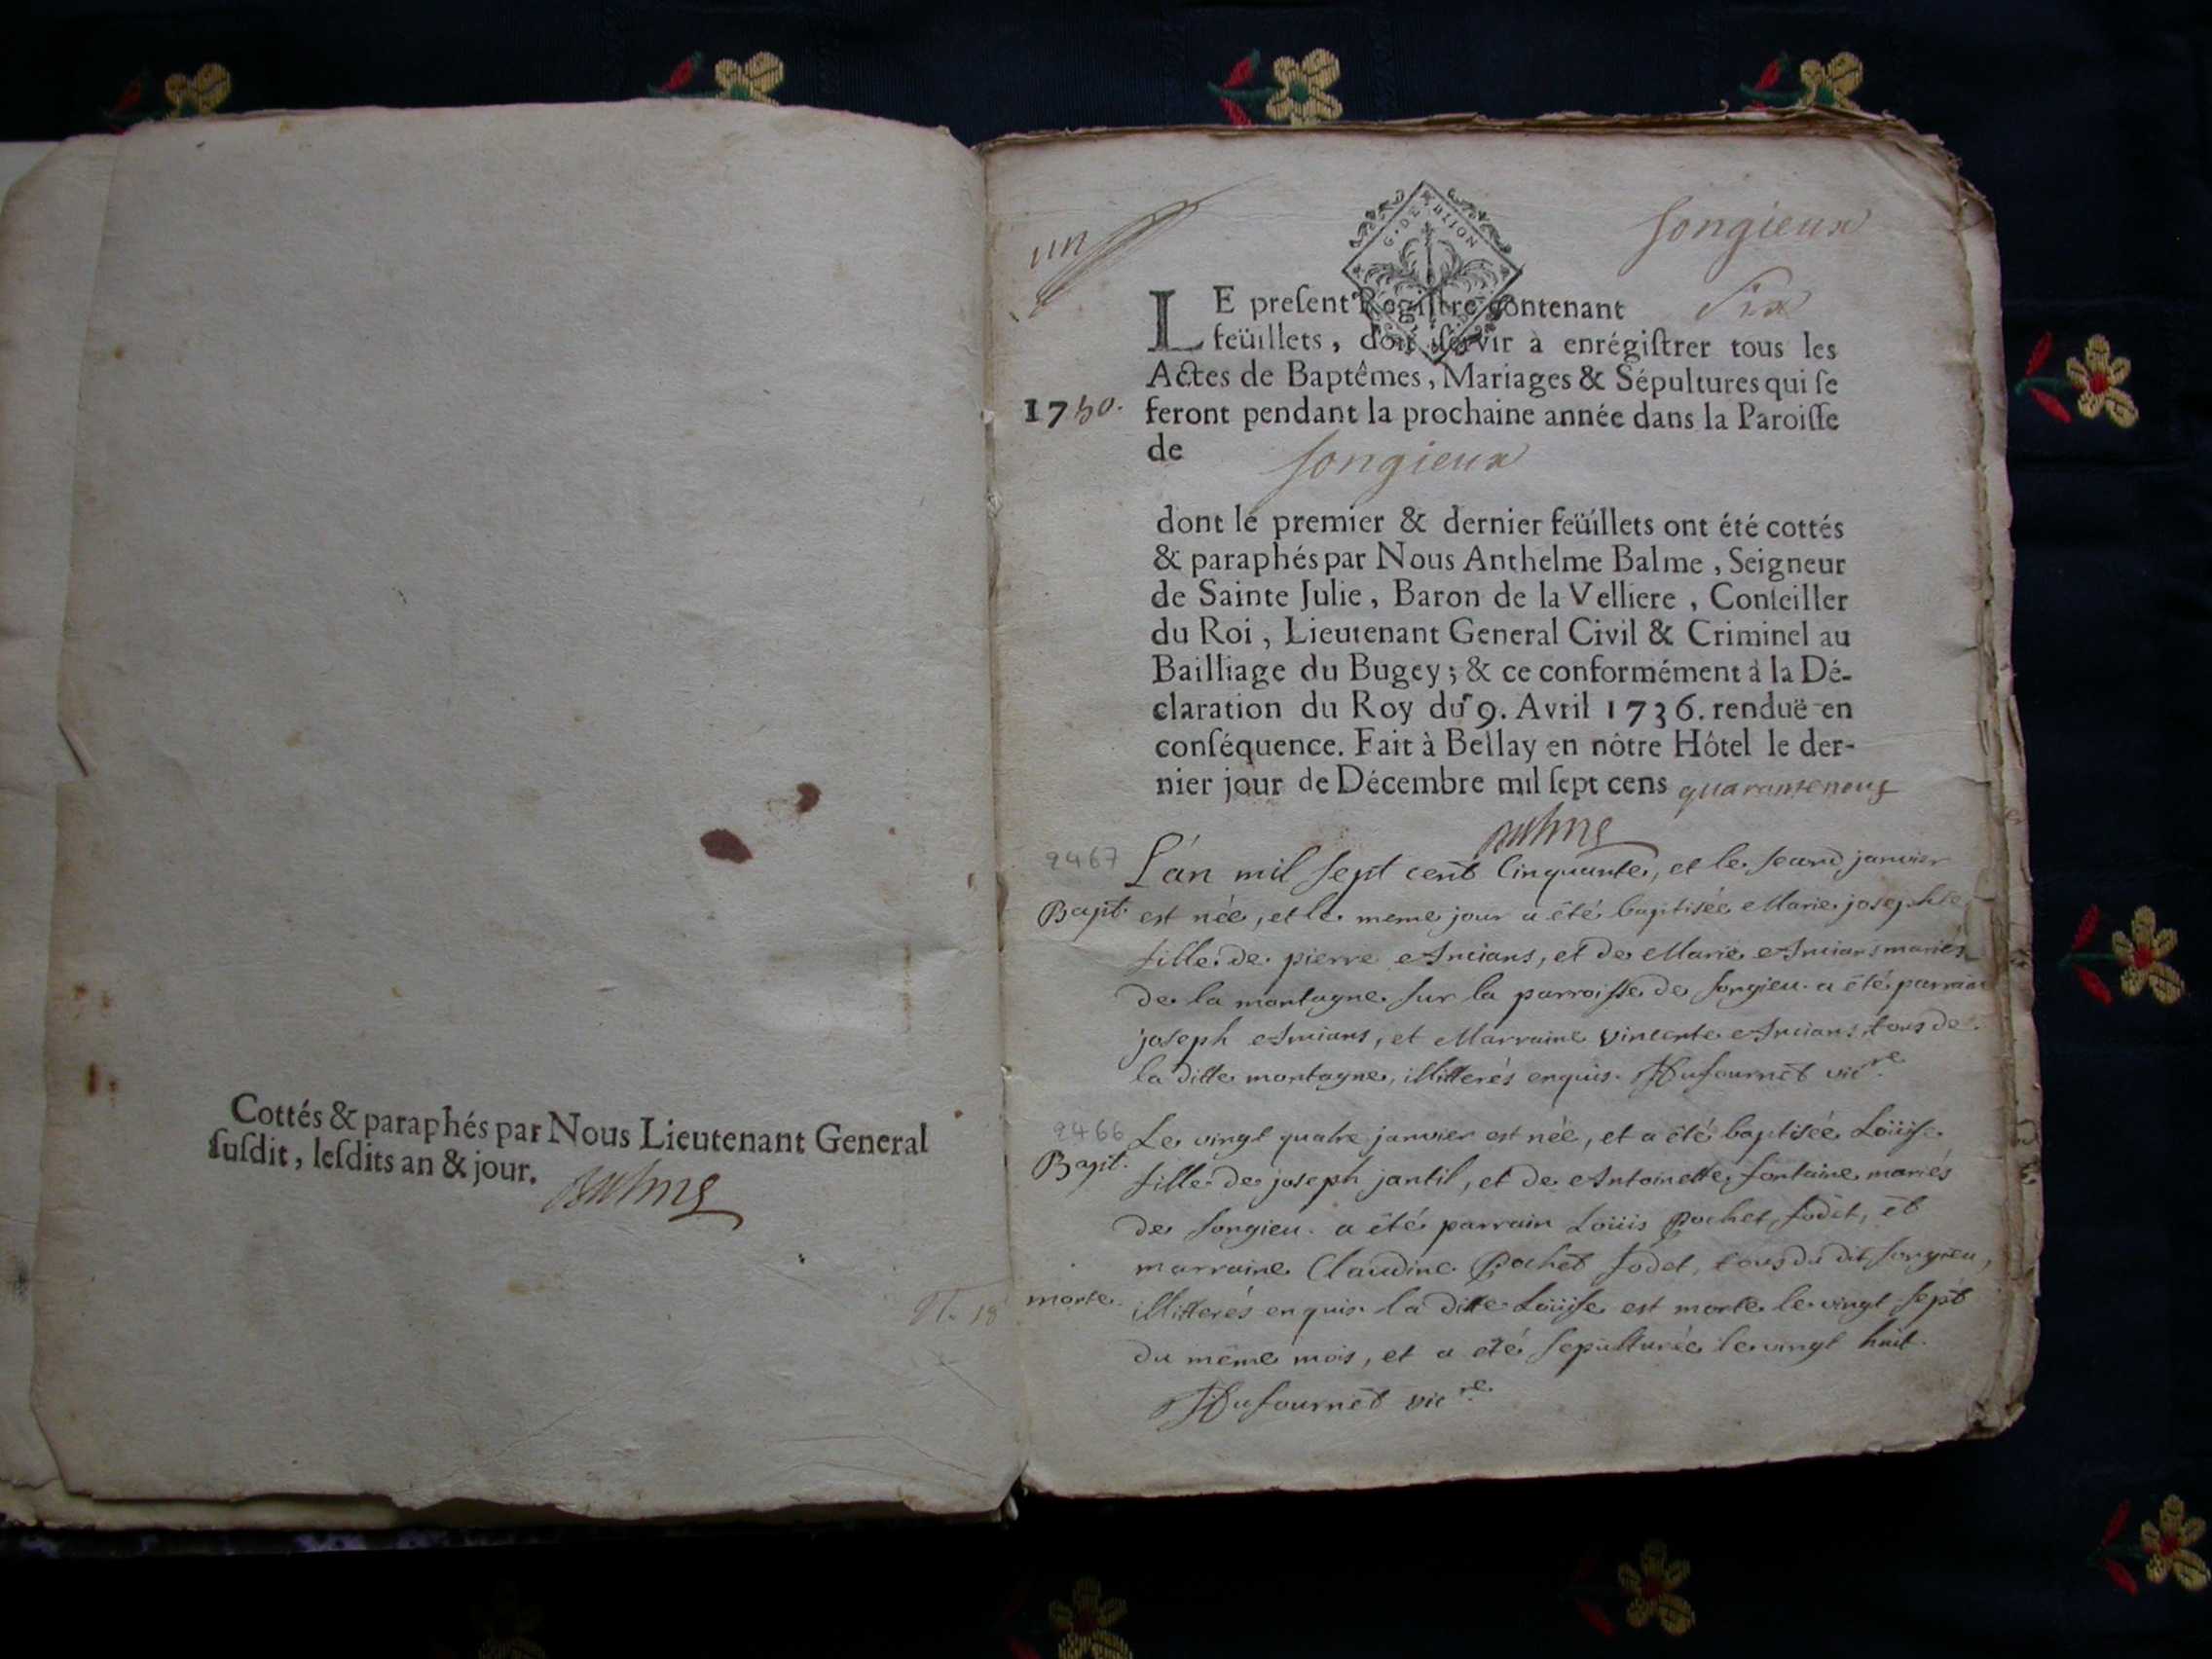 Cottés & paraphés par Nous Lieutenant General
ſuſdit, leſdits an & jour.
Balme
un
G. DE DIJON
Songieux
LE preſent Regiſtre contenant Six
feüillets, doit ſervir à enrégiſtrer tous les
Actes de Baptêmes, Mariages & Sépultures qui ſe
1750. feront pendant la prochaine année dans la Paroiſſe
de Songieux
dont le premier & dernier feüillets ont été cottés
& paraphés par Nous Anthelme Balme, Seigneur
de Sainte Julie, Baron de la Velliere, Conſeiller
du Roi, Lieutenant General Civil & Criminel au
Bailliage du Bugey; & ce conformément à la Dé-
claration du Roy du 9. Avril 1736. renduë en
conſéquence. Fait à Bellay en nôtre Hôtel le der-
nier jour de Décembre mil ſept cens quarante neuf
Balme
2467 L'an mil sept cent Cinquante, et le second janvier
Bapt. est née, et le meme jour a été baptisée Marie josephte
fille de pierre Ancians, et de Marie Ancians mariés
de la montagne sur la parroisse de songieu. a été parrain
joseph Ancians, et Marraine vincente Ancians tous de
la ditte montagne, illitterés enquis. Dufournet vic.re
2466 Le vingt quatre janvier est née, et a été baptisée Loüise
Bapt. fille de joseph jantil, et de Antoinette fontaine mariés
de songieu. a été parrain Loüis Pochet fodet, et
marraine Claudine Pochet fodet, tous du dit songieu,
morte. illitterés enquis. la ditte Loüise est morte le vingt sept
du même mois, et a été sepulturée le vingt huit.
Dufournet vic.re